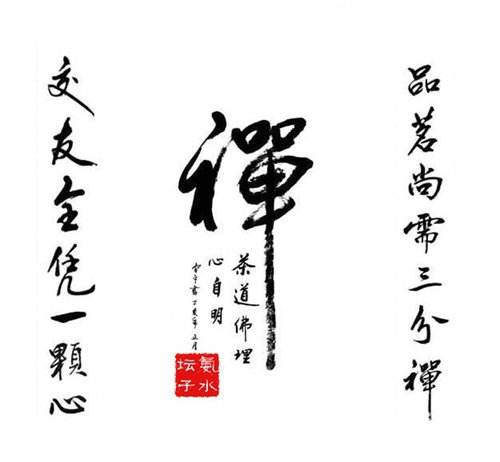 品茗尚需三分禪
禪
茶道佛理
心自明
氨水
坛子
交友全凭一顆心